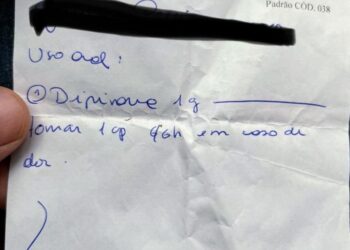 Padrão CÓD. 038
Uso oral:
① Dipirona 1g
tomar 1 cp 6/6h em caso de
dor.